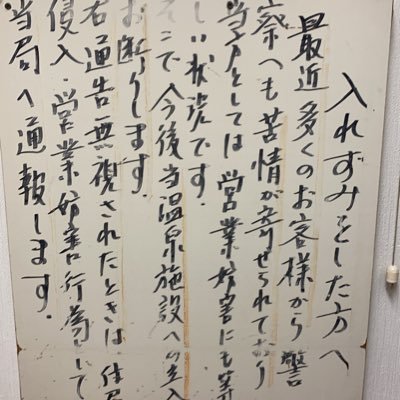 入れずみをした方へ
最近多くのお客様から警
察へも苦情が寄せられており
当方としては営業妨害にも等
しい状況です。
そこで今後当温泉施設への立入
お断りします
右通告無視されたときは、住居
侵入・営業妨害行為として
当局へ通報します。